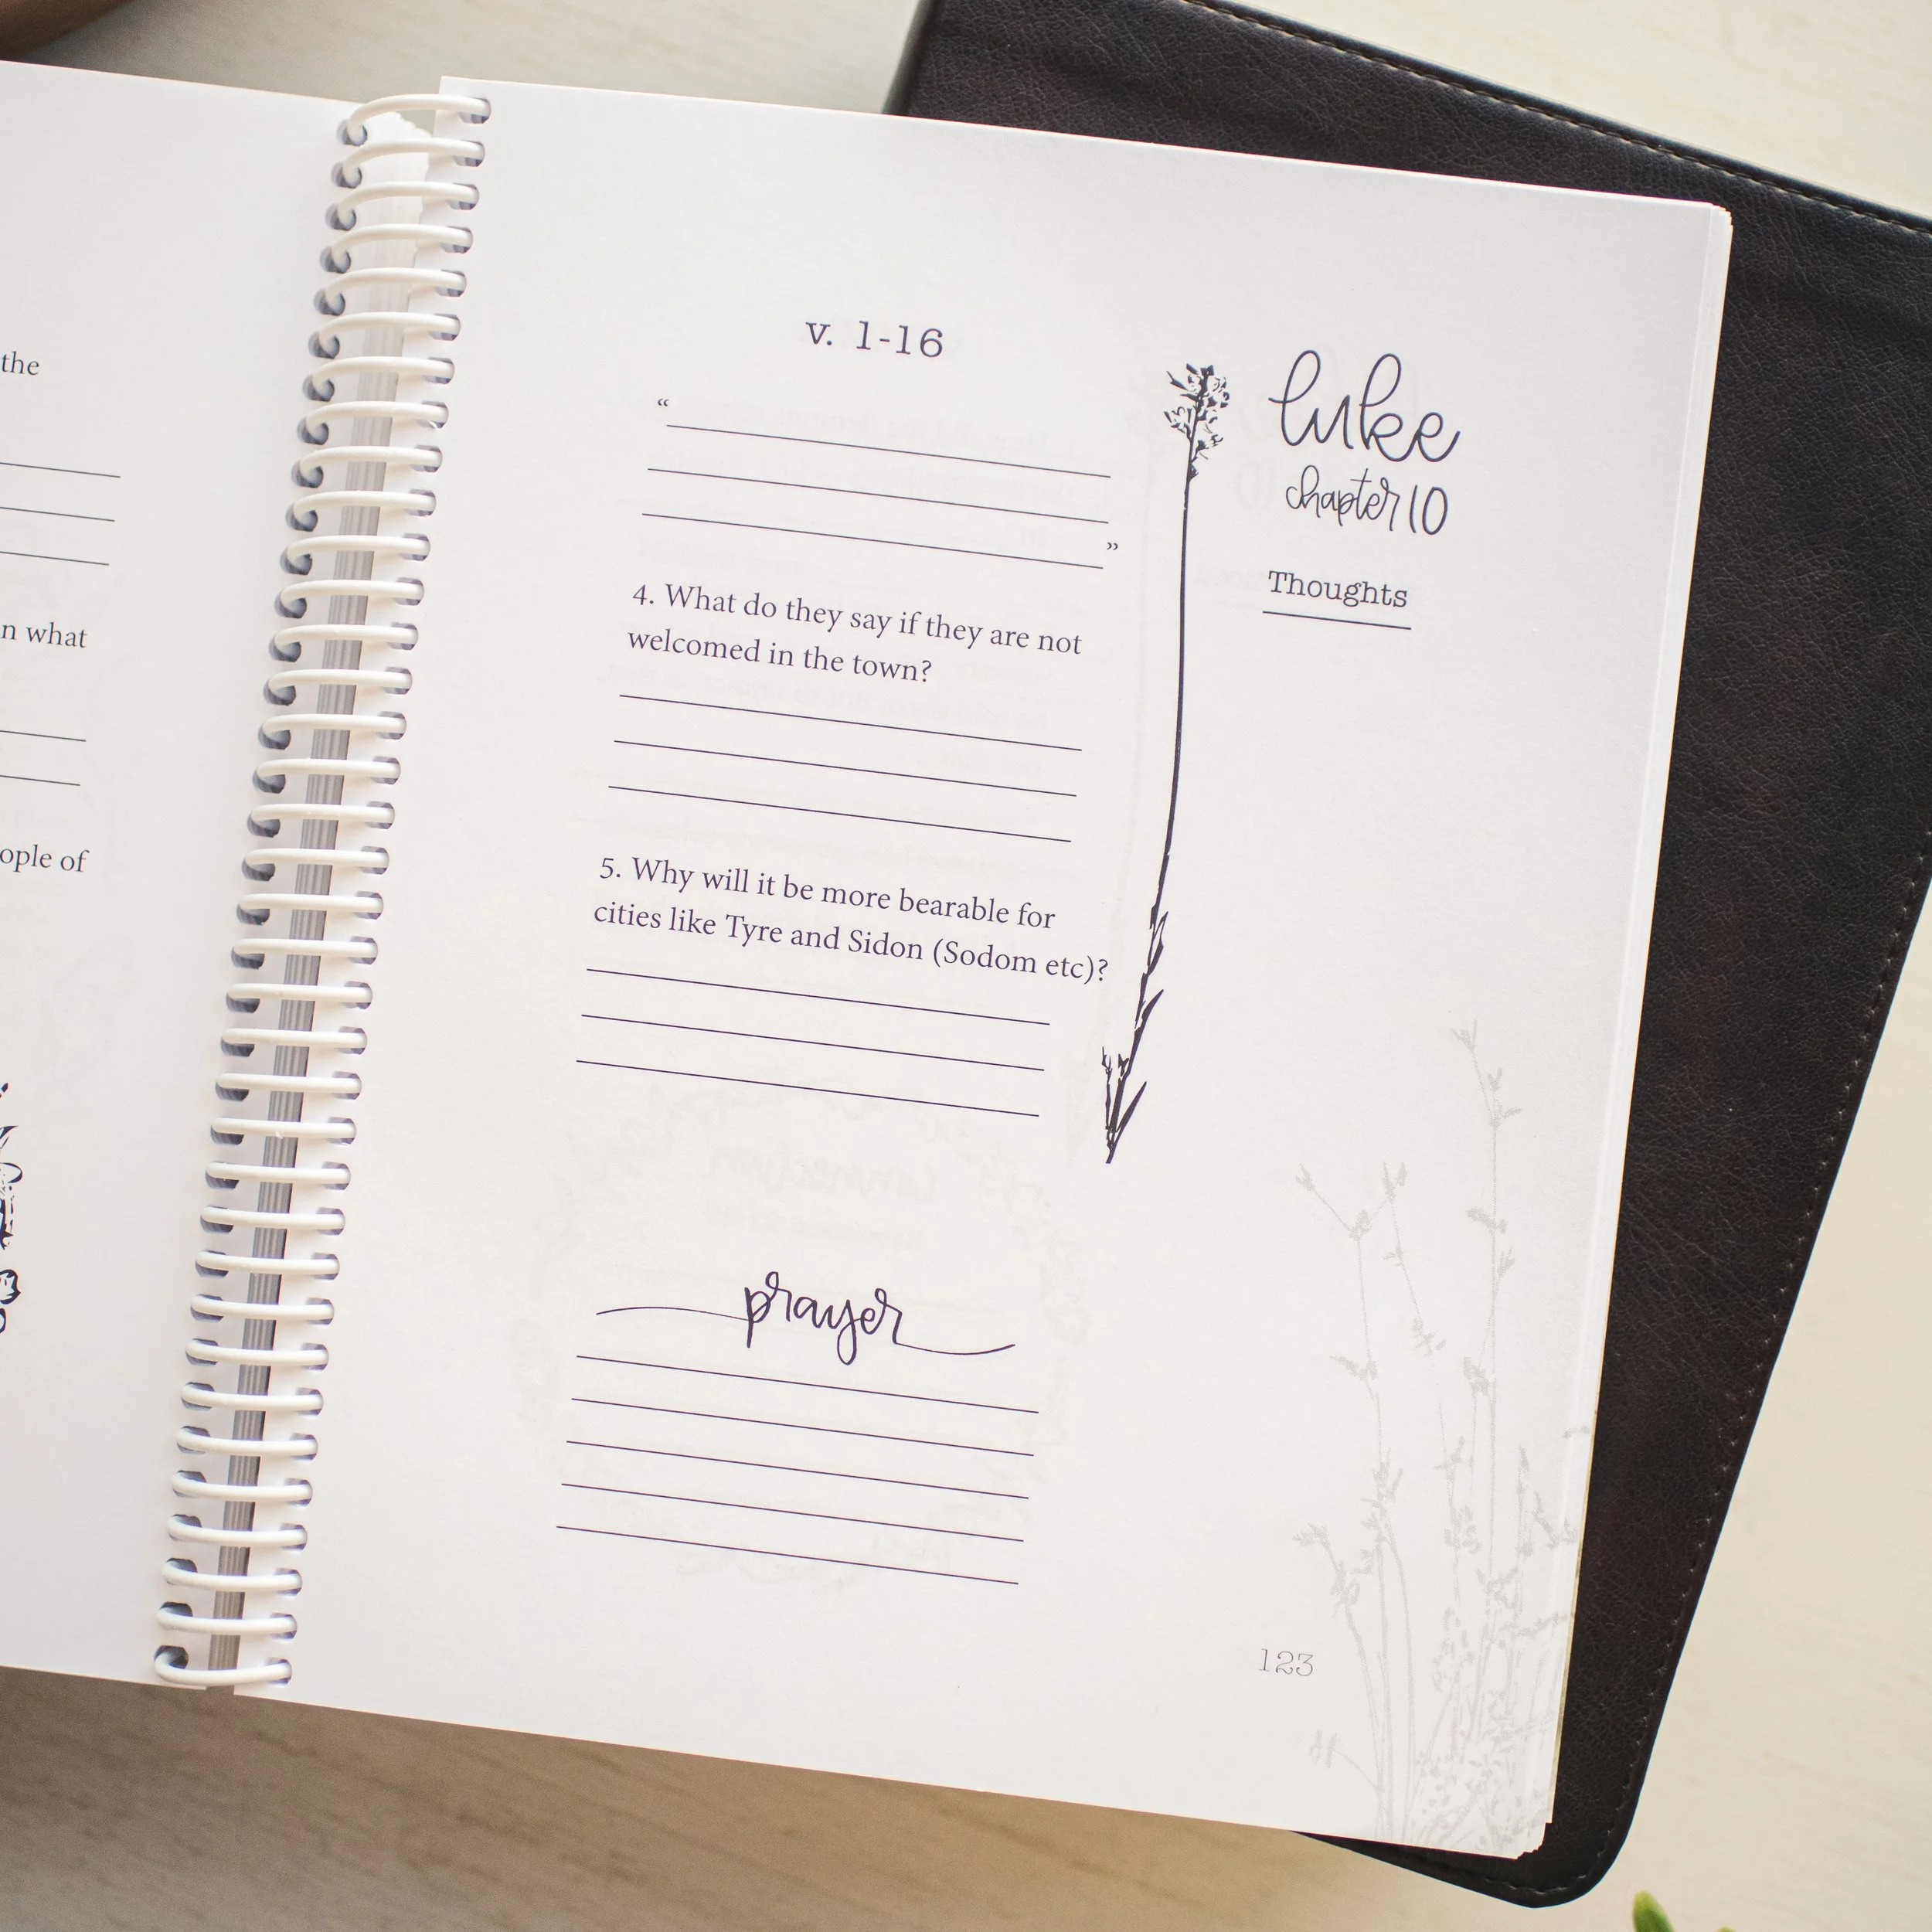 the
n what
ople of
v. 1-16
“
”
4. What do they say if they are not
welcomed in the town?
5. Why will it be more bearable for
cities like Tyre and Sidon (Sodom etc)?
prayer
luke
chapter 10
Thoughts
123